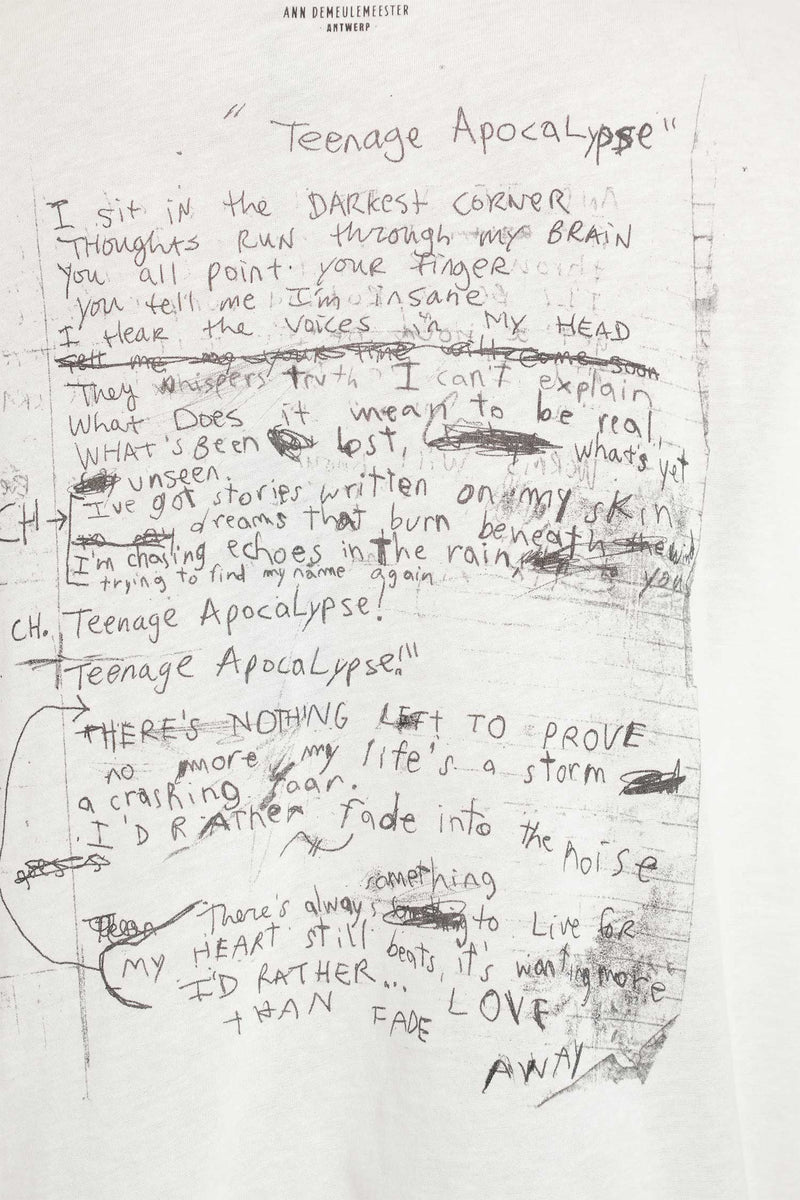 ANN DEMEULEMEESTER
ANTWERP
" Teenage ApocaLypse"
I sit iN the DARKEst CORNER
THOUGHTS RUN through my BRAIN
You all point your finger
you tell me I'm insane
I HEAR the voices in MY HEAD
tell me my yours time will come soon
They whispers truth I can't explain
What Does it mean to be real,
WHAT'S BEEN lost, what's yet
unseen.
CH → I've got stories written on my skin
dreams that burn beneath the
I'm chasing echoes in The rain, to you
trying to find my name again
CH. Teenage ApocaLypse!
Teenage ApocaLypse!"
tHERE'S NOTHING LEFt TO PROVE
no more, my life's a storm
a crashing roar.
I'D RATHER fade into the noise
something
There's always to Live for
MY HEART still beats, it's wanting more
I'D RATHER... LOVE
tHAN FADE
AWAY